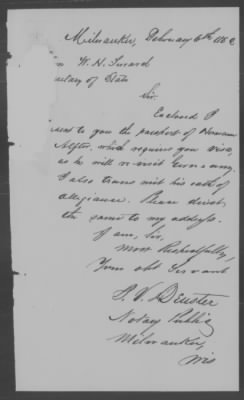 Milwaukee, February 6th, 186
W. H. Seward
of State
Sir.
Enclosed I
send to you the passport of Herman
which requires your visa,
as he will re-visit Germany.
I also transmit his oath of
allegiance. Please direct
the same to my address.
I am, Sir,
Most Respectfully,
Your obt Servant
P. V. Deuster
Notary Public
Milwaukee,
Wis